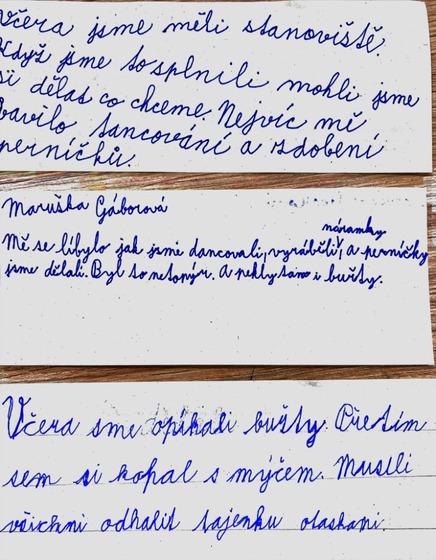 Včera jsme měli stanoviště.
Když jsme to splnili mohli jsme
si dělat co chceme. Nejvíc mě
bavilo tancování a zdobení
perníčků.
Maruška Gáborová
náramky
Mě se líbylo jak jsme dancovali, vyráběli, a perníčky
jsme dělali. Byl to netopýr. A pekly tam i buřty.
Včera sme opíkali buřty. Předtím
sem si kopal s mýčem. Museli
všichni odhalit tajenku